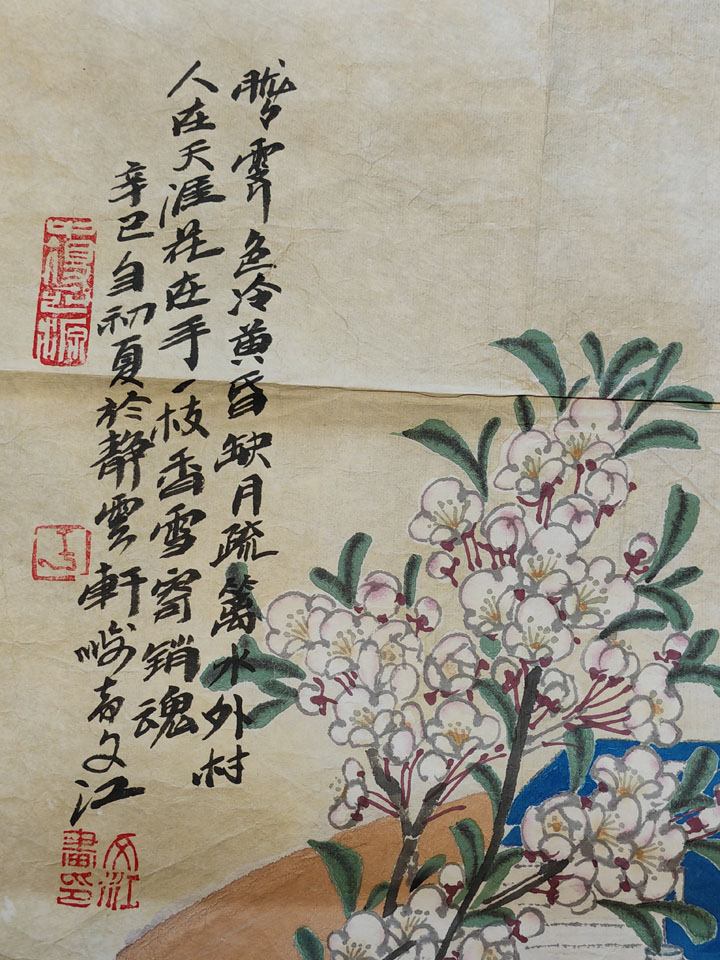 胧々霽色冷黄昏缺月疏篱水外村
人在天涯花在手一枝香雪寄銷魂
辛巳初夏於靜雲軒文江
文江畫印